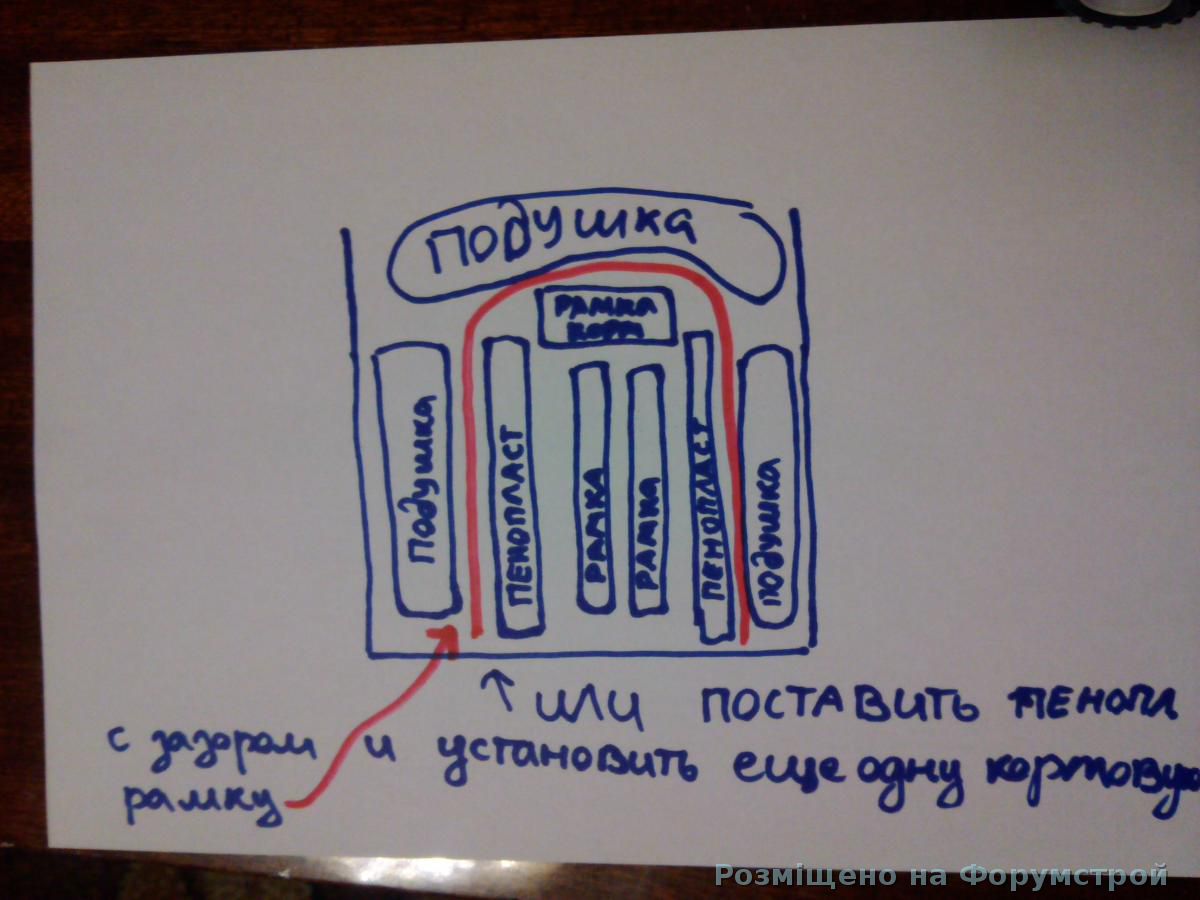 ПОДУШКА
РАМКА
КОРМ
ПОДУШКА
ПЕНОПЛАСТ
РАМКА
РАМКА
ПЕНОПЛАСТ
ПОДУШКА
ИЛИ ПОСТАВИТЬ ПЕНОПЛ
с зазором и установить еще одну кормовую
рамку
Розміщено на Форумстрой